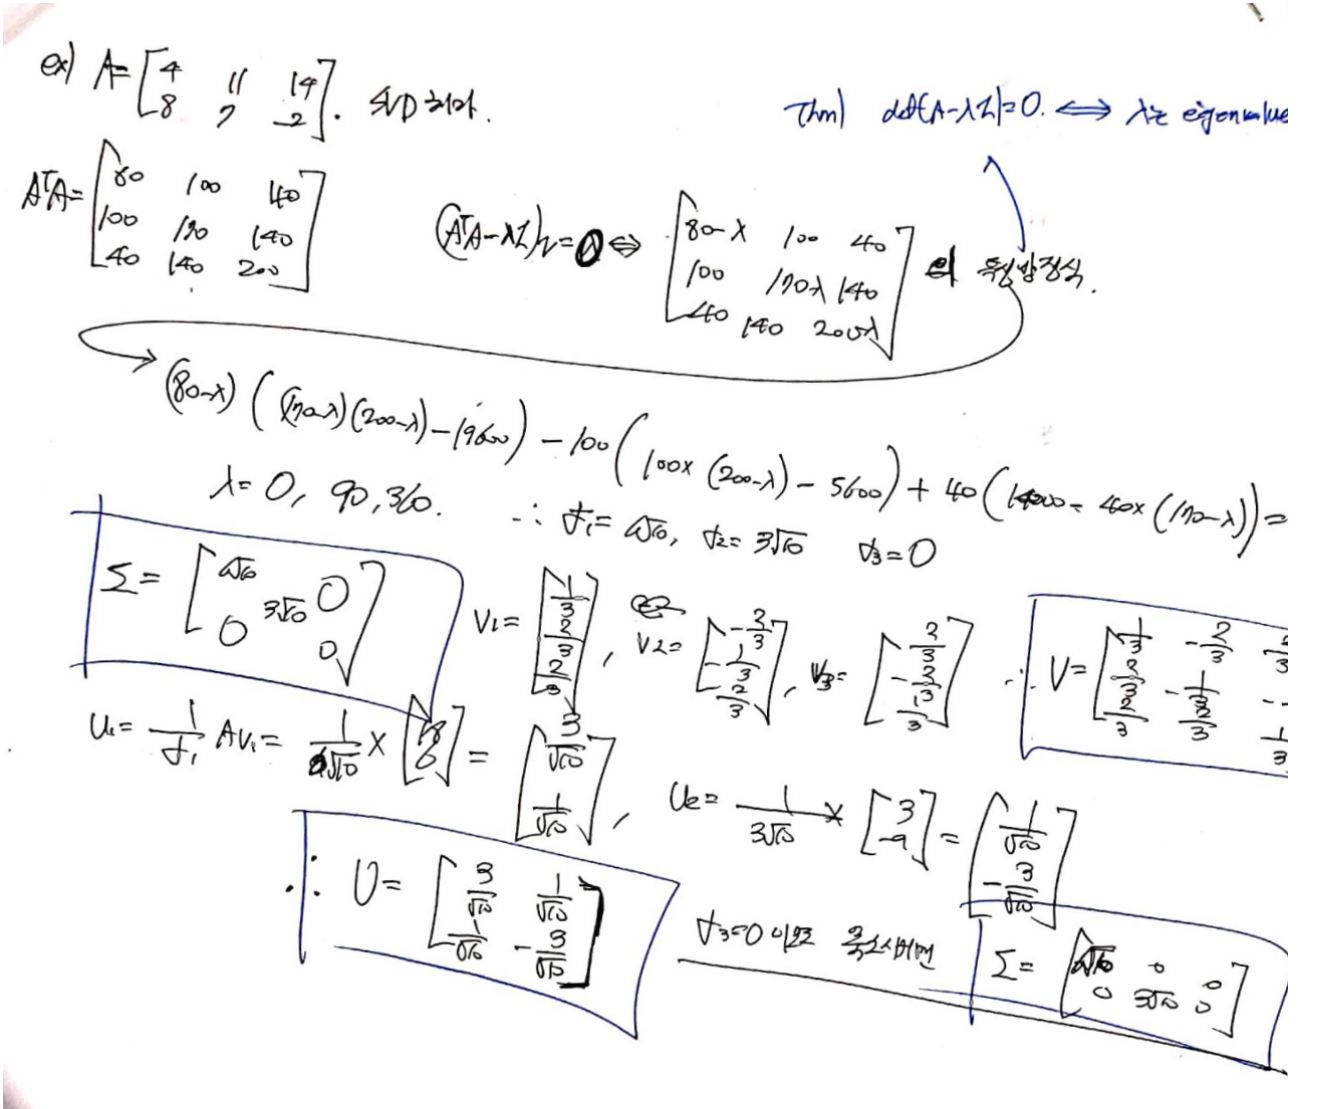 ex) A= [4 11 14; 8 7 -2]. SVD 하라.
Thm) det(A-λI)=0. ⇔ λ는 eigenvalue
AᵀA= [80 100 40; 100 170 140; 40 140 200]
(AᵀA-λI)v=0 ⇔ [80-λ 100 40; 100 170-λ 140; 40 140 200-λ] 의 특성방정식.
(80-λ)((170-λ)(200-λ)-19600) - 100(100×(200-λ)-5600) + 40(14000-40×(170-λ))=
λ=0, 90, 360. ∴ σ₁=6√10, σ₂=3√10 σ₃=0
Σ= [6√10 0; 3√10; 0 0]
V₁= [1/3; 2/3; 2/3], V₂= [-2/3; -1/3; 2/3], V₃= [2/3; -2/3; 1/3] ∴ V= [1/3 -2/3 2/3; 2/3 -1/3 -; 2/3 2/3 1/3]
U₁= 1/σ₁ AV₁= 1/6√10 × [18; 6] = [3/√10; 1/√10], U₂= 1/3√10 × [3; -9] = [1/√10; -3/√10]
∴ U= [3/√10 1/√10; 1/√10 -3/√10]
σ₃=0 이므로 축소시키면 Σ= [6√10 0 0; 0 3√10 0]